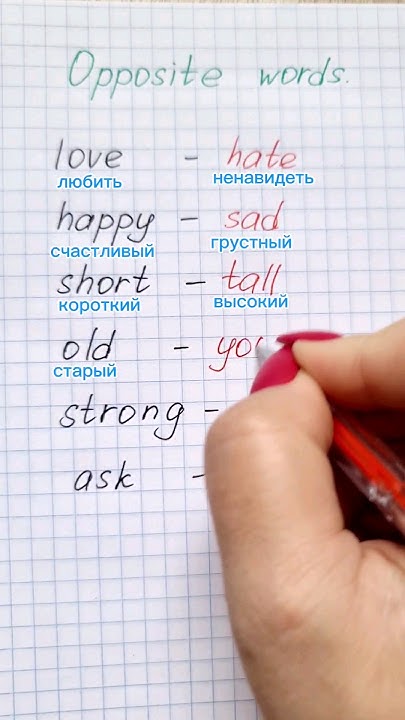 Opposite words.
love - hate
любить ненавидеть
happy - sad
счастливый грустный
short - tall
короткий высокий
old - you
старый
strong -
ask -